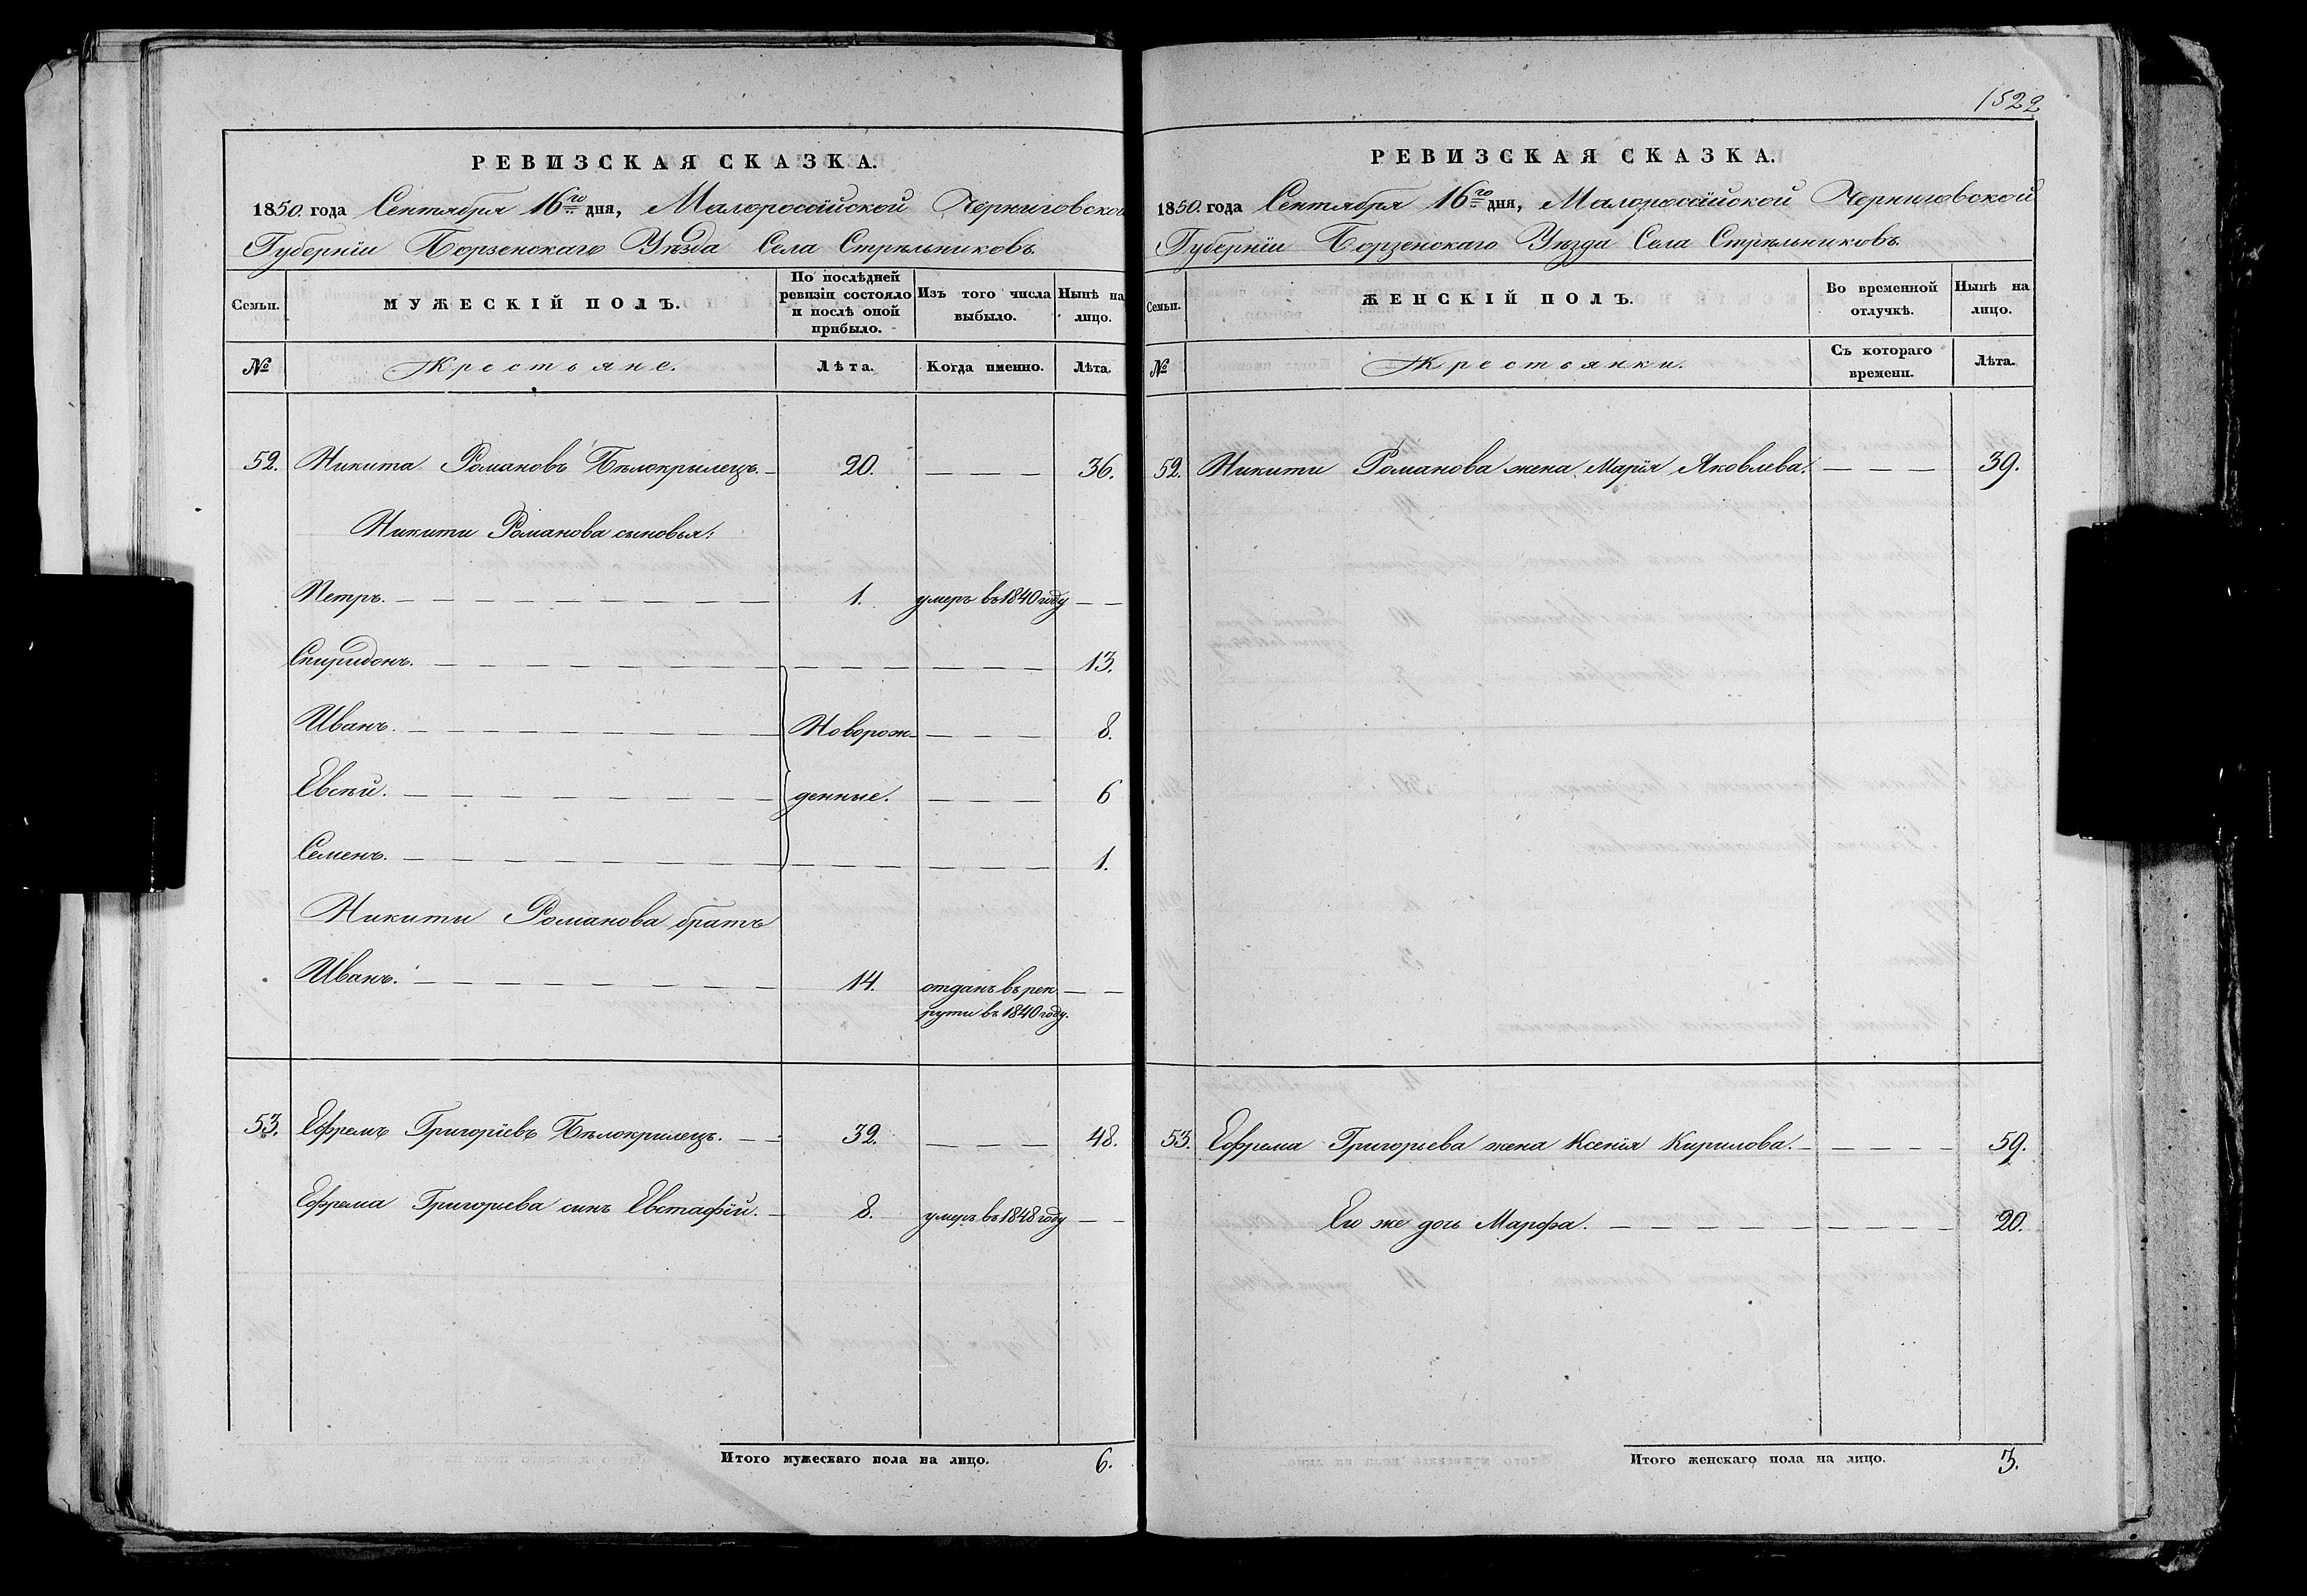 1522
РЕВИЗСКАЯ СКАЗКА.
1850. года Сентября 16го дня, Малороссійской Черниговской
Губерніи Борзенскаго Уѣзда Села Стрѣльниковъ.
Семьи.
МУЖЕСКІЙ ПОЛЪ.
По послѣдней
ревизіи состояло
и послѣ оной
прибыло.
Изъ того числа
выбыло.
Нынѣ на
лицо.
№ Крестьяне. Лѣта. Когда именно. Лѣта.
52. Никита Романовъ Бѣлокрылецъ. — 20. — — — 36.
Никити Романова сыновья:
Петръ. — 1. умеръ въ 1840 году — —
Спиридонъ. — — — — 13.
Иванъ. — Новорож- — — — 8.
Евсѣй. — денные. — — — 6
Семенъ. — — — — 1.
Никити Романова братъ
Иванъ. — 14. отданъ въ рек — —
рути въ 1840 году.
53. Ефремъ Григоріевъ Бѣлокрилецъ. — 32. — — — 48.
Ефрема Григориева синъ Евстафій. — 8. умеръ въ 1848 году — —
Итого мужескаго пола на лицо. 6.
РЕВИЗСКАЯ СКАЗКА.
1850. года Сентября 16го дня, Малороссійской Черниговской
Губерніи Борзенскаго Уѣзда Села Стрѣльниковъ.
Семьи.
ЖЕНСКІЙ ПОЛЪ.
Во временной
отлучкѣ.
Нынѣ на
лицо.
№ Крестьянки.
Съ котораго
времени.
Лѣта.
52. Никити Романова жена Марія Яковлева. — — — 39.
53. Ефрема Григорьева жена Ксенія Кирилова. — — — 59.
Его же дочь Марфа. — — — 20.
Итого женскаго пола на лицо. 3.